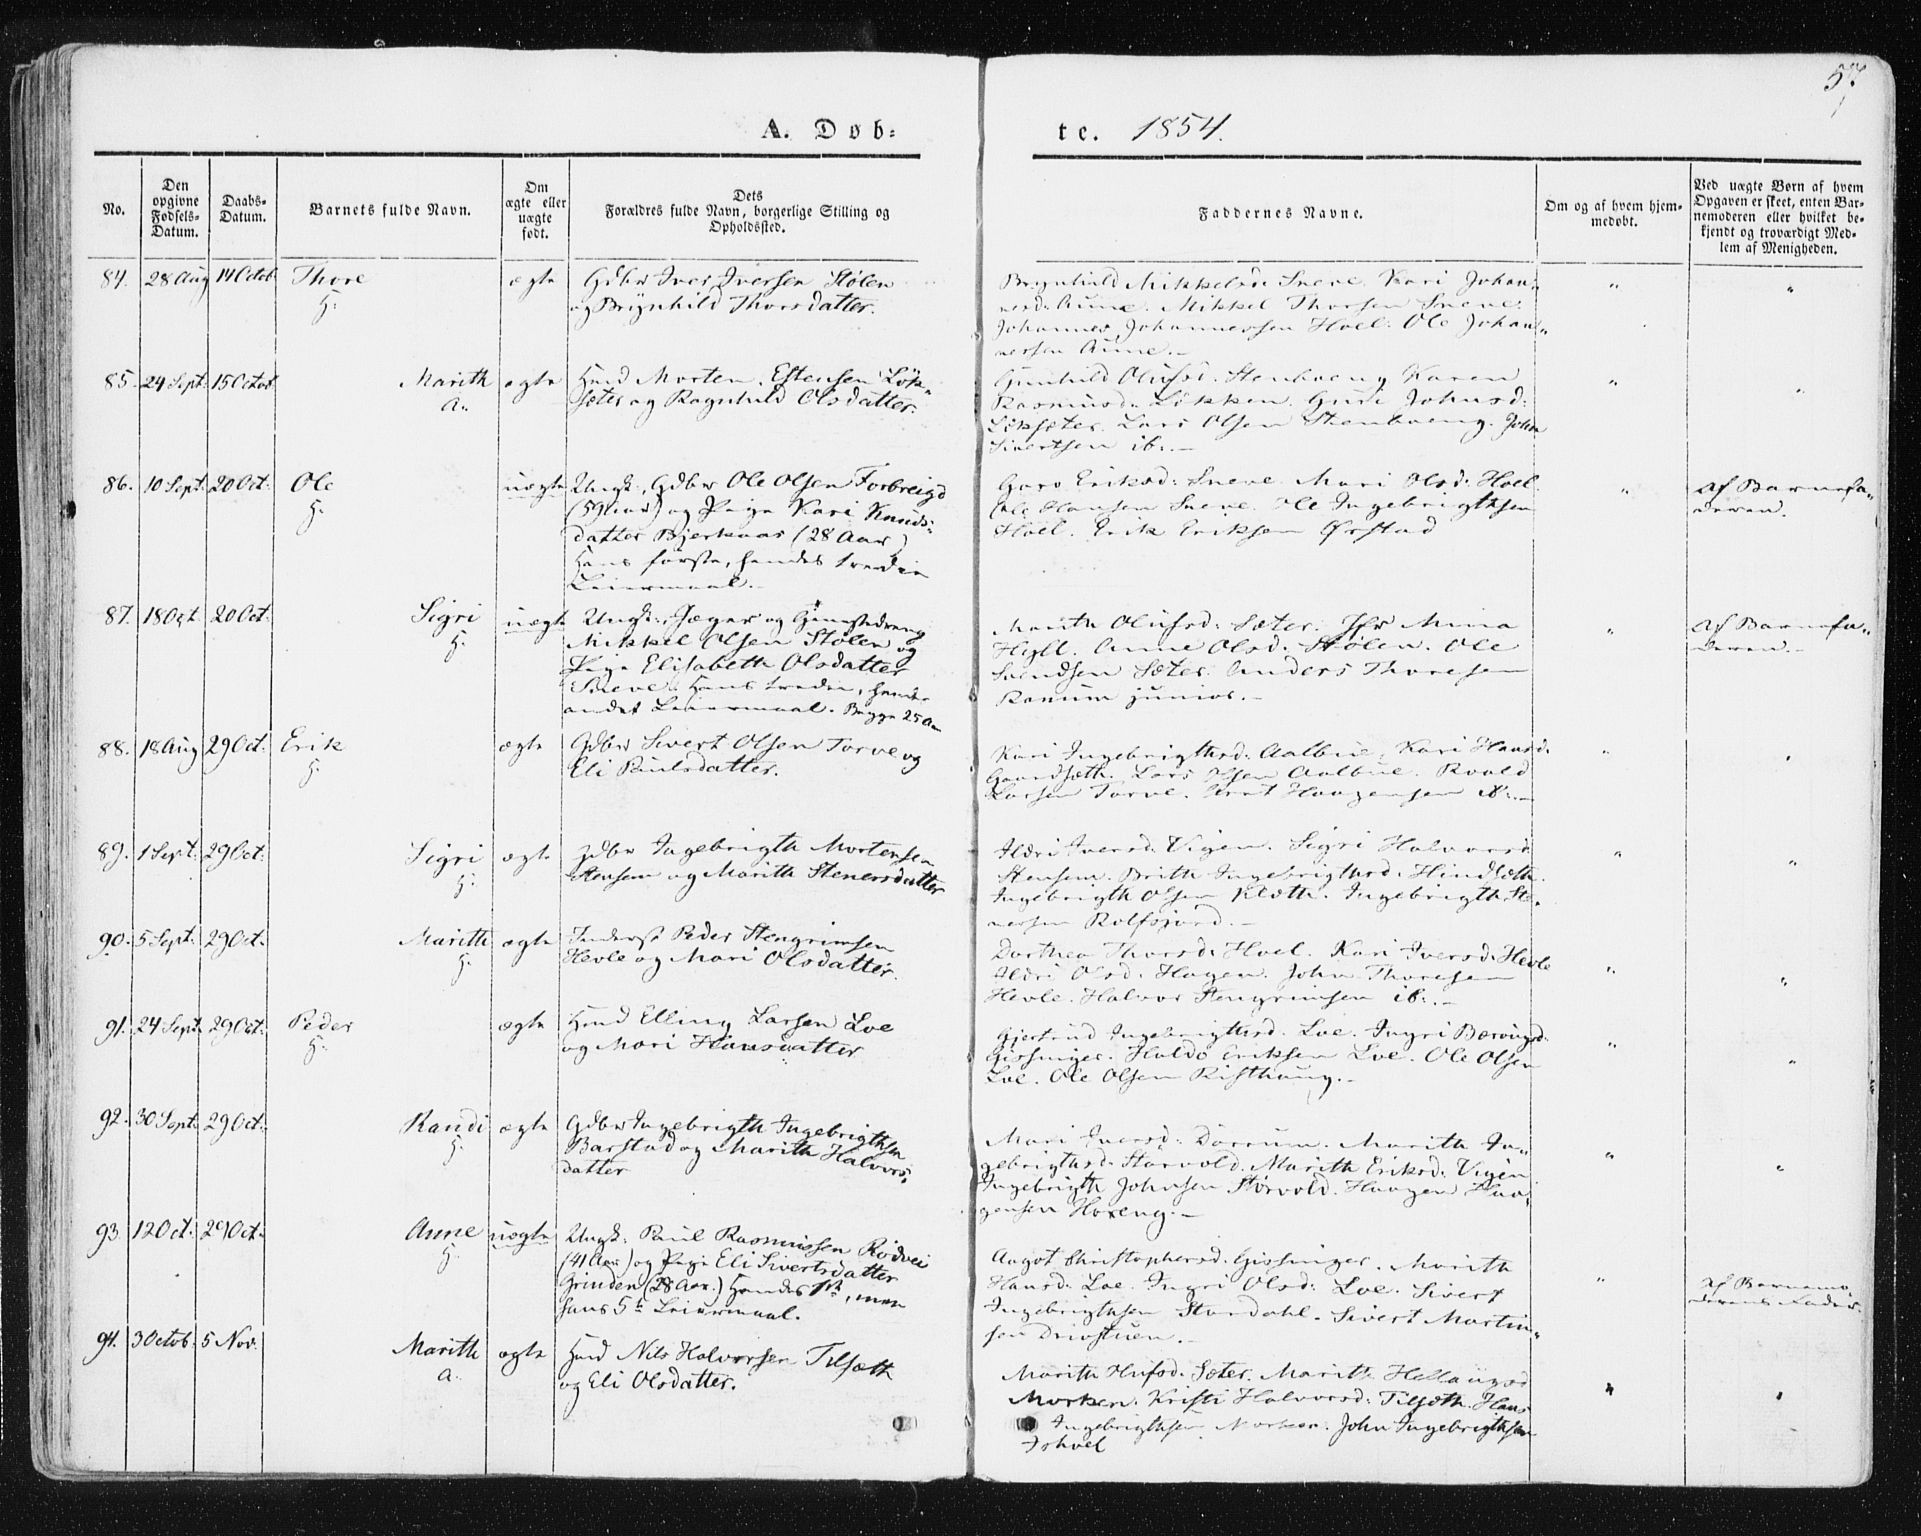 57
A. Døb-
te. 1854.
No.
Den opgivne Fødsels-Datum.
Daabs-Datum.
Barnets fulde Navn.
Om ægte eller uægte født.
Dets Forældres fulde Navn, borgerlige Stilling og Opholdssted.
Faddernes Navne.
Om og af hvem hjemmedøbt.
Ved uægte Børn af hvem Opgaven er skeet, enten Barnemoderen eller hvilket bekjendt og troværdigt Medlem af Menigheden.
84. 28 Aug 14 Octob Thore ægte Gdbr Iver Iversen Stølen
H.
og Brynhild Thorsdatter.
Brynhild Mikkelsd: Sneve. Kari Johan-
nesd: Aune. Mikkel Thorsen Sneve.
Johannes Johannessen Hoel. Ole Johan-
nessen Aune.
85. 24 Sept: 15 Octob Marith ægte Huusmd Morten Estensen Løk-
A.
sæter og Ragnhild Olsdatter.
Gunhild Olufsd: Stenboeng Karen
Rasmusd: Løkken. Guri Johnsd:
Løksæter. Lars Olsen Stenboeng. John
Sivertsen ib:
86. 10 Sept: 20 Oct: Ole uægte Ungk: Gdbr Ole Olsen Forbreigd
H.
(59 Aar) og Pige Kari Knuds-
datter Bjerkaas (28 Aar)
Hans første, hendes tredie
Leiermaal.
Guro Eriksd: Sneve Mari Olsd: Hoel
Ole Hansen Sneve. Ole Ingebrigtsen
Hoel. Erik Eriksen Ørstad
Af Barnefa-
deren.
87. 18 Oct 20 Oct: Sigri uægte Ungk: Jæger og
H.
Mikkel Olsen Stølen og
Pige Elisabeth Olsdatter
Sneve. Hans tredie, hendes
andet Leiermaal. Begge 25 Aar
Marith Olufsd: Sæter. Jfr Mina
Anne Olsd: Stølen. Ole
Svendsen Sæter. Anders Thoresen
Ranum junior.
Af Barnefa-
deren.
88. 18 Aug 29 Oct. Erik ægte Gdbr Sivert Olsen Torve og
H.
Eli Paulsdatter.
Kari Ingebrigtsd: Aalbue. Kari Hansd:
Gaardsæth. Lars Olsen Aalbue. Roald
Larsen Torve. Arnt Haagensen ib:
89. 1 Sept: 29 Oct: Sigri ægte Gdbr Ingebrigth Mortensen
H.
Stensem og Marith Stenersdatter
Ildri Iversd: Vigen. Sigri Halvorsd:
Stensem. Brith Ingebrigtsd: Hindsæth.
Ingebrigth Olsen Kleth. Ingebrigth Ste-
nersen Rolfsjord.
90. 5 Sept: 29 Oct: Marith ægte Inderst Peder Stengrimsen
H.
Hevle og Mari Olsdatter.
Dorthea Thorsd: Hoel. Kari Iversd: Hevle
Ildri Olsd: Hagen. John Thoresen
Hevle. Halvor Stengrimsen ib:
91. 24 Sept: 29 Oct: Peder ægte Huusmd Elling Larsen Loe
H.
og Mari Hansdatter
Gjertrud Ingebrigtsd: Loe. Ingri
Gissinger. Haldo Eriksen Loe. Ole Olsen
Loe. Ole Olsen Risthaug.
92. 30 Sept: 29 Oct: Randi ægte Gdbr Ingebrigth Ingebrigthsen
H.
Barstad og Marith Halvors-
datter
Mari Iversd: Dørrum. Marith In-
gebrigtsd: Størvold. Marith Eriksd: Vigen
Ingebrigth Johnsen Størvold. Haagen Haa-
gensen Horeng.
93 12 Oct: 29 Oct: Anne uægte Ungk: Paul Rasmussen Rødvei
H.
(41 Aar) og Pige Eli Sivertsdatter
Grinden (28 Aar.) Hendes 1ste, men
hans 5te Leiermaal.
Aagot Christophersd: Gissinger. Marith
Hansd: Loe. Ingri Olsd: Loe. Sivert
Ingebrigthsen Stordahl. Sivert Martin-
sen Drivstuen.
Af Barnemo-
derens Fader.
94. 3 Octob: 5 Nov: Marith ægte Huusmd Nils Halvorsen Tilsæth
A.
og Eli Olsdatter.
Marith Olufsd: Sæter. Marith Hellaugsd
Morken. Kristi Halvorsd: Tilsæth. Hans
Ingebrigthsen Morken. John Ingebrigthsen
Ishoel